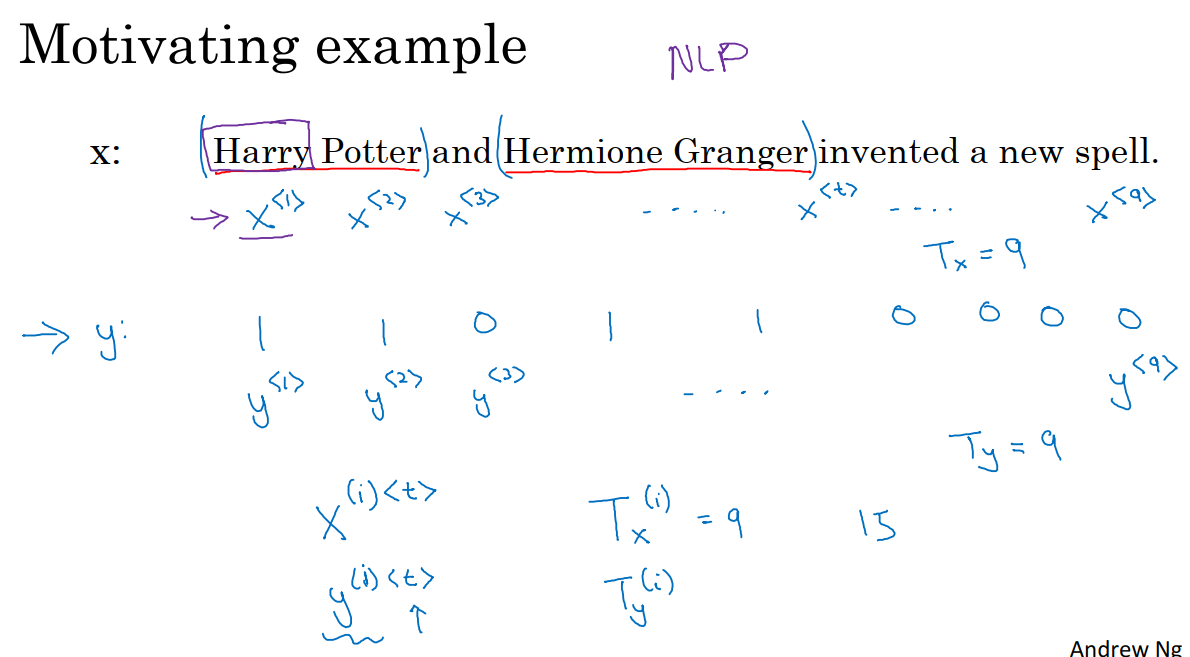 Motivating example NLP
x: (Harry Potter) and (Hermione Granger) invented a new spell.
→ x<1> x<2> x<3> - · · · · x<t> - · · · x<9>
Tx = 9
→ y: 1 1 0 1 1 0 0 0 0
y<1> y<2> y<3> - · · · y<9>
Ty = 9
x(i)<t> Tx(i) = 9 15
y(i)<t> Ty(i)
↑
Andrew Ng